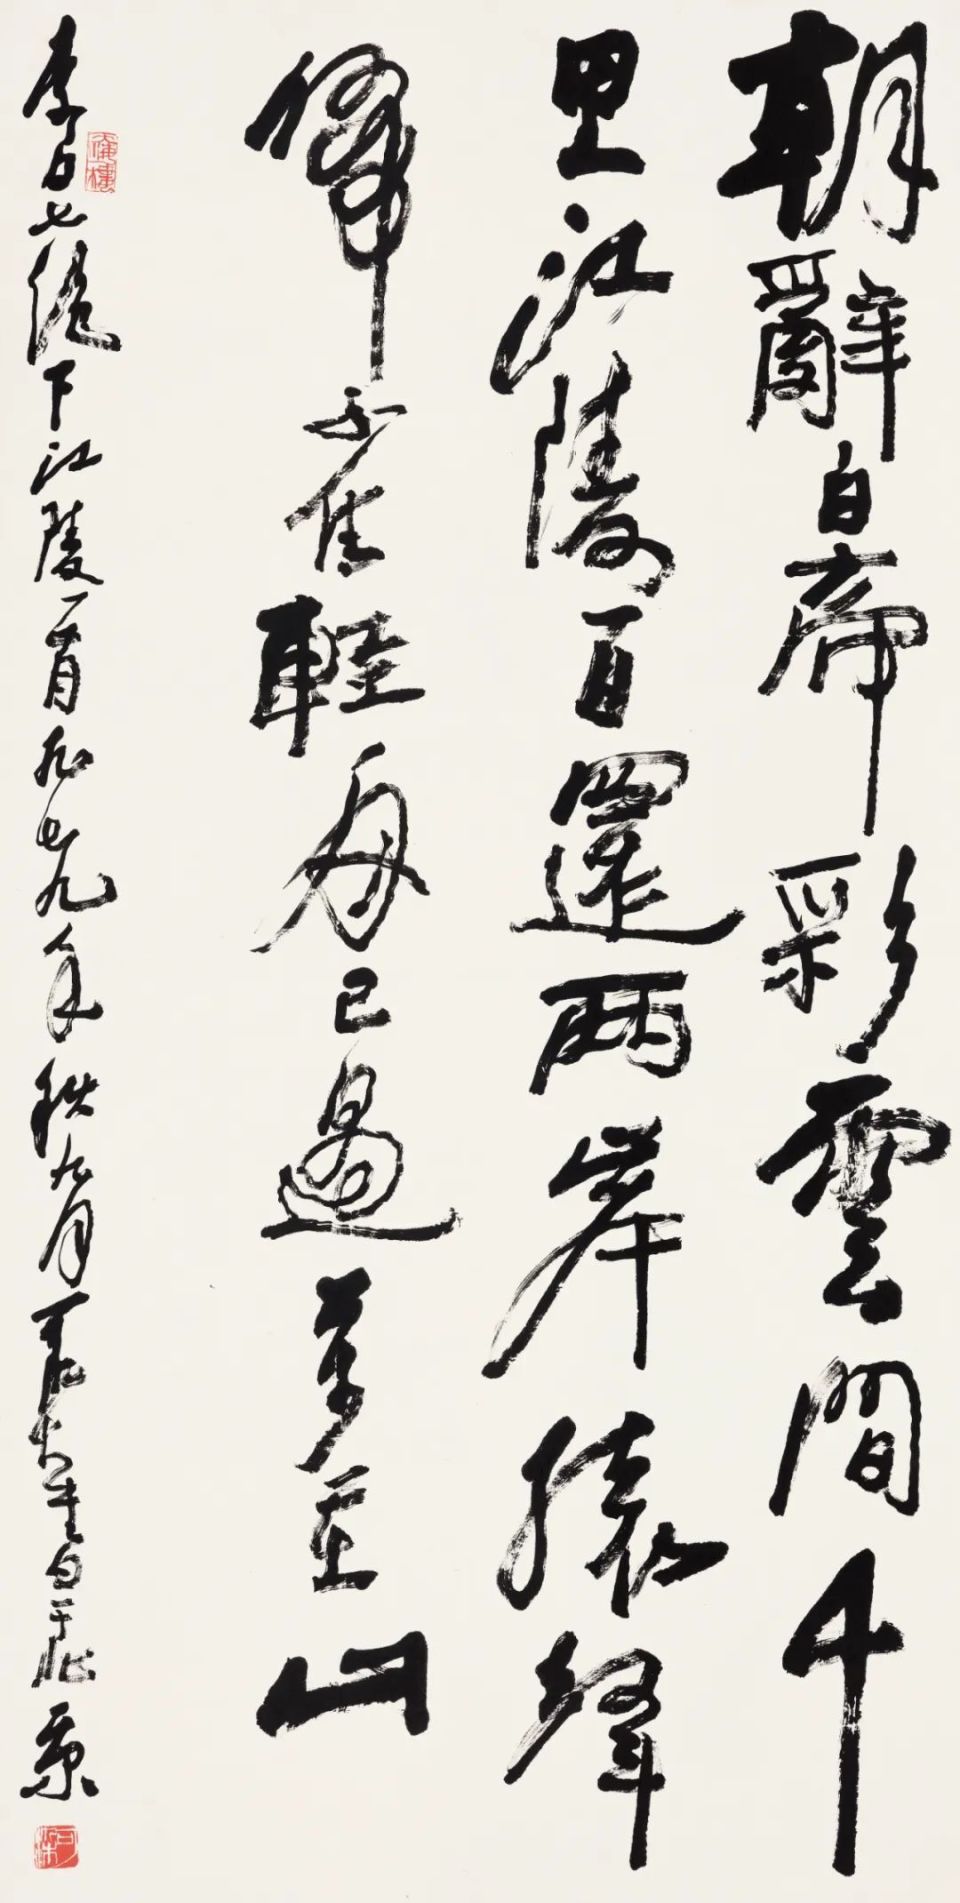 朝辭白帝彩雲間千
里江陵一日還兩岸猿聲
啼不住輕舟已過萬重山
李白七絕下江陵一首一九七九年秋九月
可染